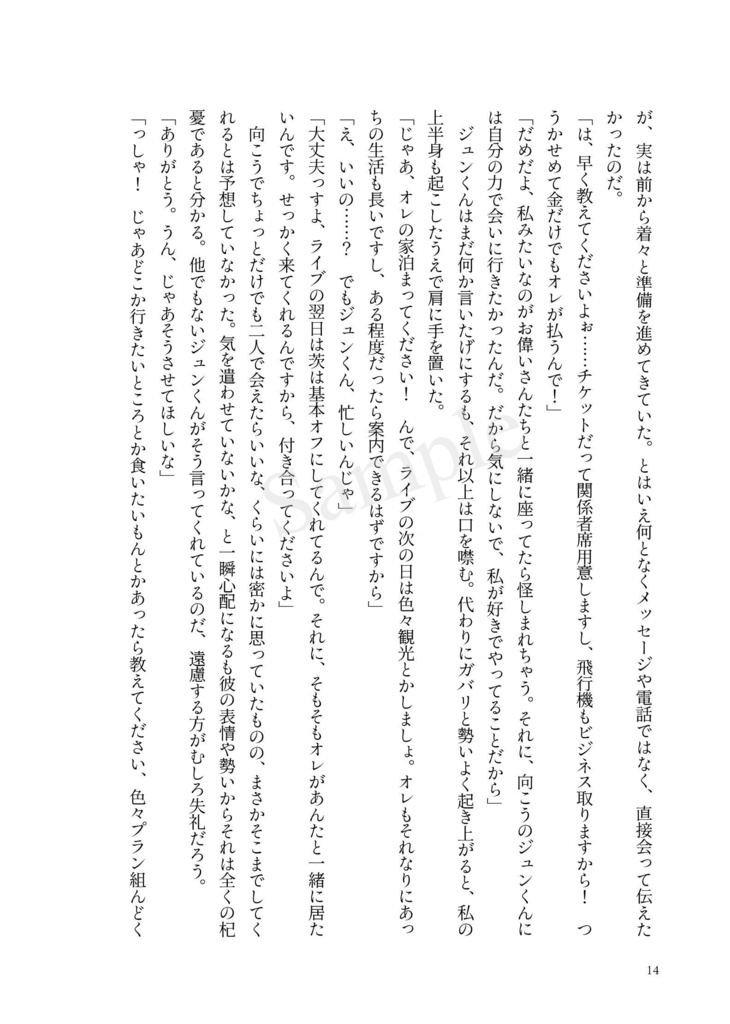 が、実は前から着々と準備を進めてきていた。とはいえ何となくメッセージや電話ではなく、直接会って伝えた
かったのだ。
「は、早く教えてくださいよぉ……チケットだって関係者席用意しますし、飛行機もビジネス取りますから！　つ
うかせめて金だけでもオレが払うんで！」
「だめだよ、私みたいなのがお偉いさんたちと一緒に座ってたら怪しまれちゃう。それに、向こうのジュンくんに
は自分の力で会いに行きたかったんだ。だから気にしないで、私が好きでやってることだから」
　ジュンくんはまだ何か言いたげにするも、それ以上は口を噤む。代わりにガバリと勢いよく起き上がると、私の
上半身も起こしたうえで肩に手を置いた。
「じゃあ、オレの家泊まってください！　んで、ライブの次の日は色々観光とかしましょ。オレもそれなりにあっ
ちの生活も長いですし、ある程度だったら案内できるはずですから」
「え、いいの……？　でもジュンくん、忙しいんじゃ」
「大丈夫っすよ、ライブの翌日は茨は基本オフにしてくれてるんで。それに、そもそもオレがあんたと一緒に居た
いんです。せっかく来てくれるんですから、付き合ってくださいよ」
　向こうでちょっとだけでも二人で会えたらいいな、くらいには密かに思っていたものの、まさかそこまでしてく
れるとは予想していなかった。気を遣わせていないかな、と一瞬心配になるも彼の表情や勢いからそれは全くの杞
憂であると分かる。他でもないジュンくんがそう言ってくれているのだ、遠慮する方がむしろ失礼だろう。
「ありがとう。うん、じゃあそうさせてほしいな」
「っしゃ！　じゃあどこか行きたいところとか食いたいもんとかあったら教えてください、色々プラン組んどく
14
Sample